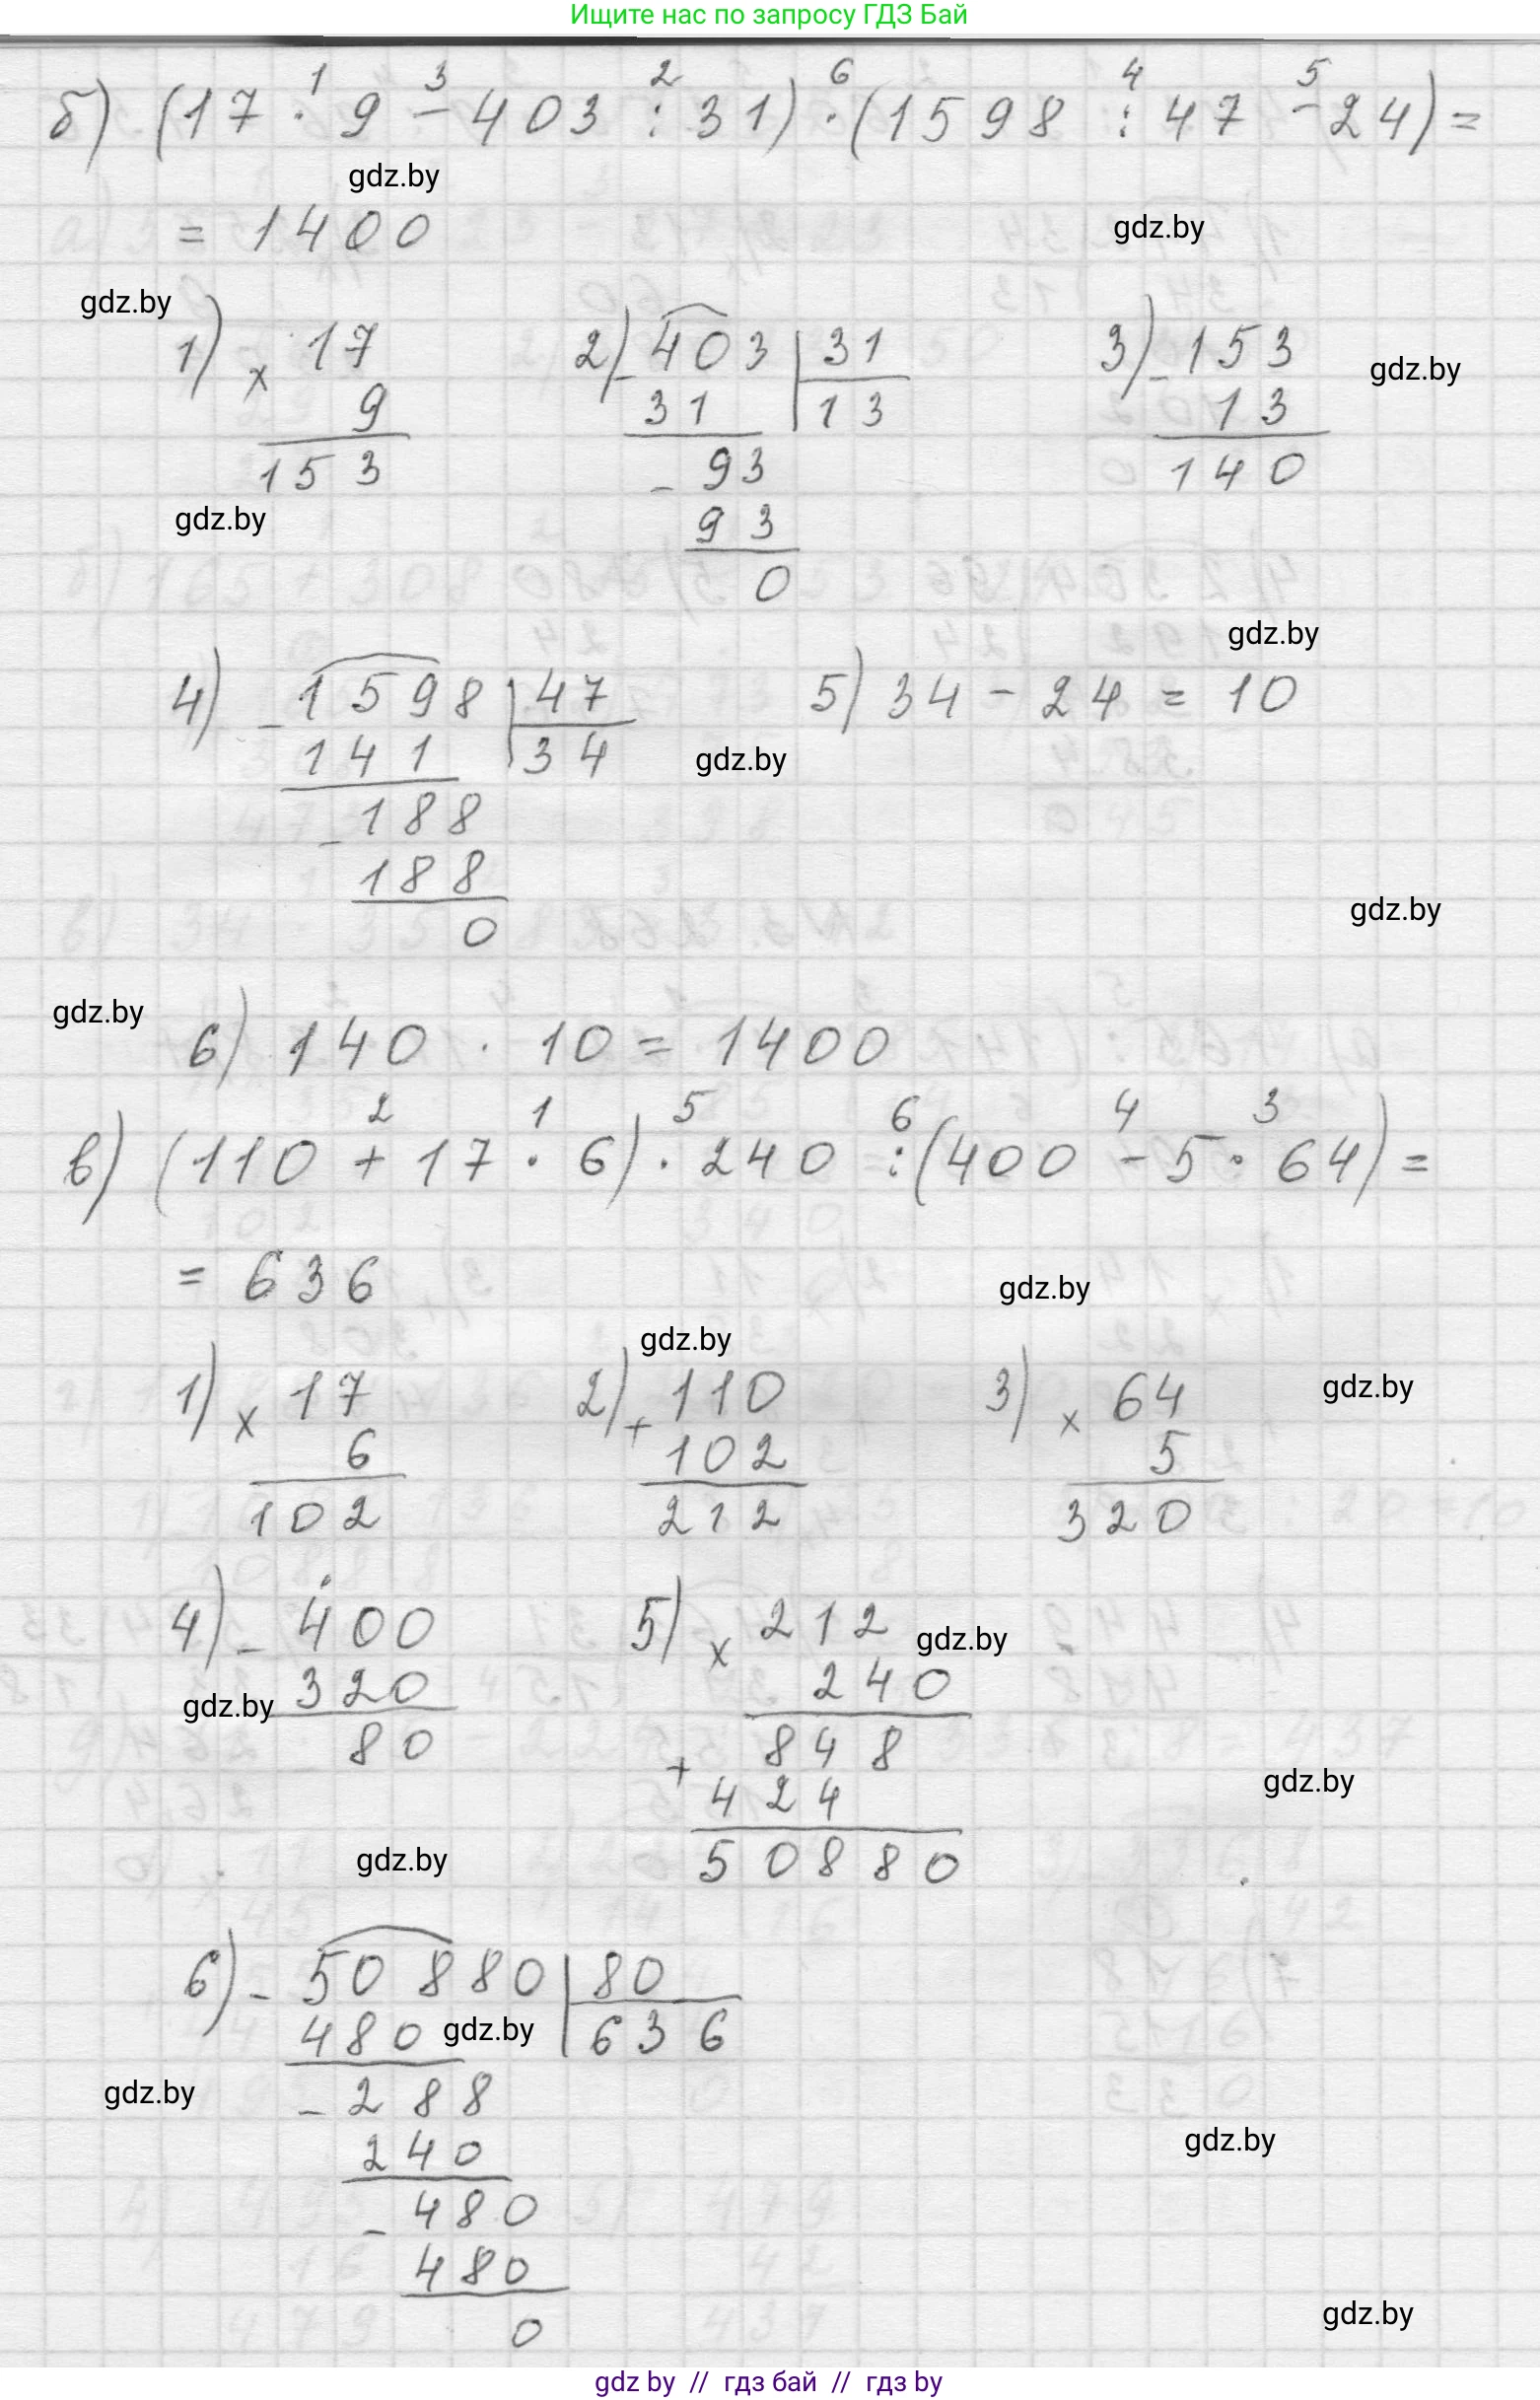 Ищите нас по запросу ГДЗ Бай
1 3 2 6 4 5
б) (17 · 9 - 403 : 31) · (1598 : 47 - 24) =
gdz.by
= 1400
gdz.by
gdz.by
1) × 17
9
153
2) - 403 | 31
31 | 13
- 93
93
0
3) - 153
13
140
gdz.by
gdz.by
gdz.by
4) - 1598 | 47
141 | 34
- 188
188
0
5) 34 - 24 = 10
gdz.by
gdz.by
gdz.by
6) 140 · 10 = 1400
2 1 5 6 4 3
в) (110 + 17 · 6) · 240 : (400 - 5 · 64) =
= 636
gdz.by
gdz.by
1) × 17
6
102
2) + 110
102
212
3) × 64
5
320
gdz.by
4) - 400
320
80
gdz.by
5) × 212
240
848
+ 424
50880
gdz.by
gdz.by
gdz.by
6) - 50880 | 80
480 | 636
- 288
240
- 480
480
0
gdz.by
gdz.by
gdz.by
gdz.by
gdz by // гдз бай // гдз by